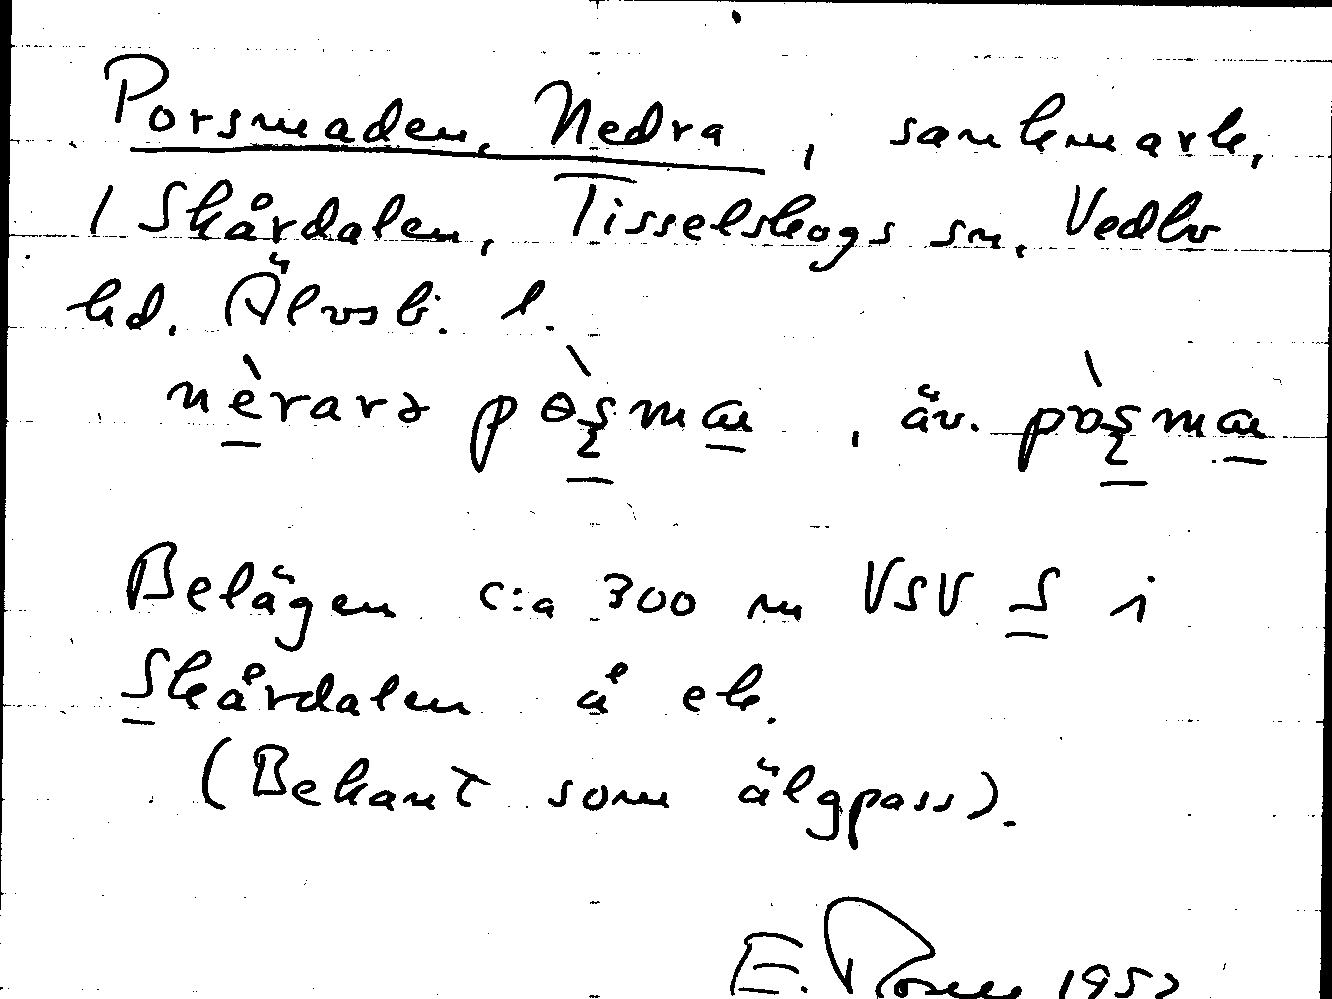 Porsmaden, Nedra, sankmark,
1 Skårdalen, Tisselskogs sn, Vedbo
hd. Älvsb. l.
Belägen c:a 300 m VSV S i
Skårdalen å ek.
(Bekant som älgpass).
E. 1952